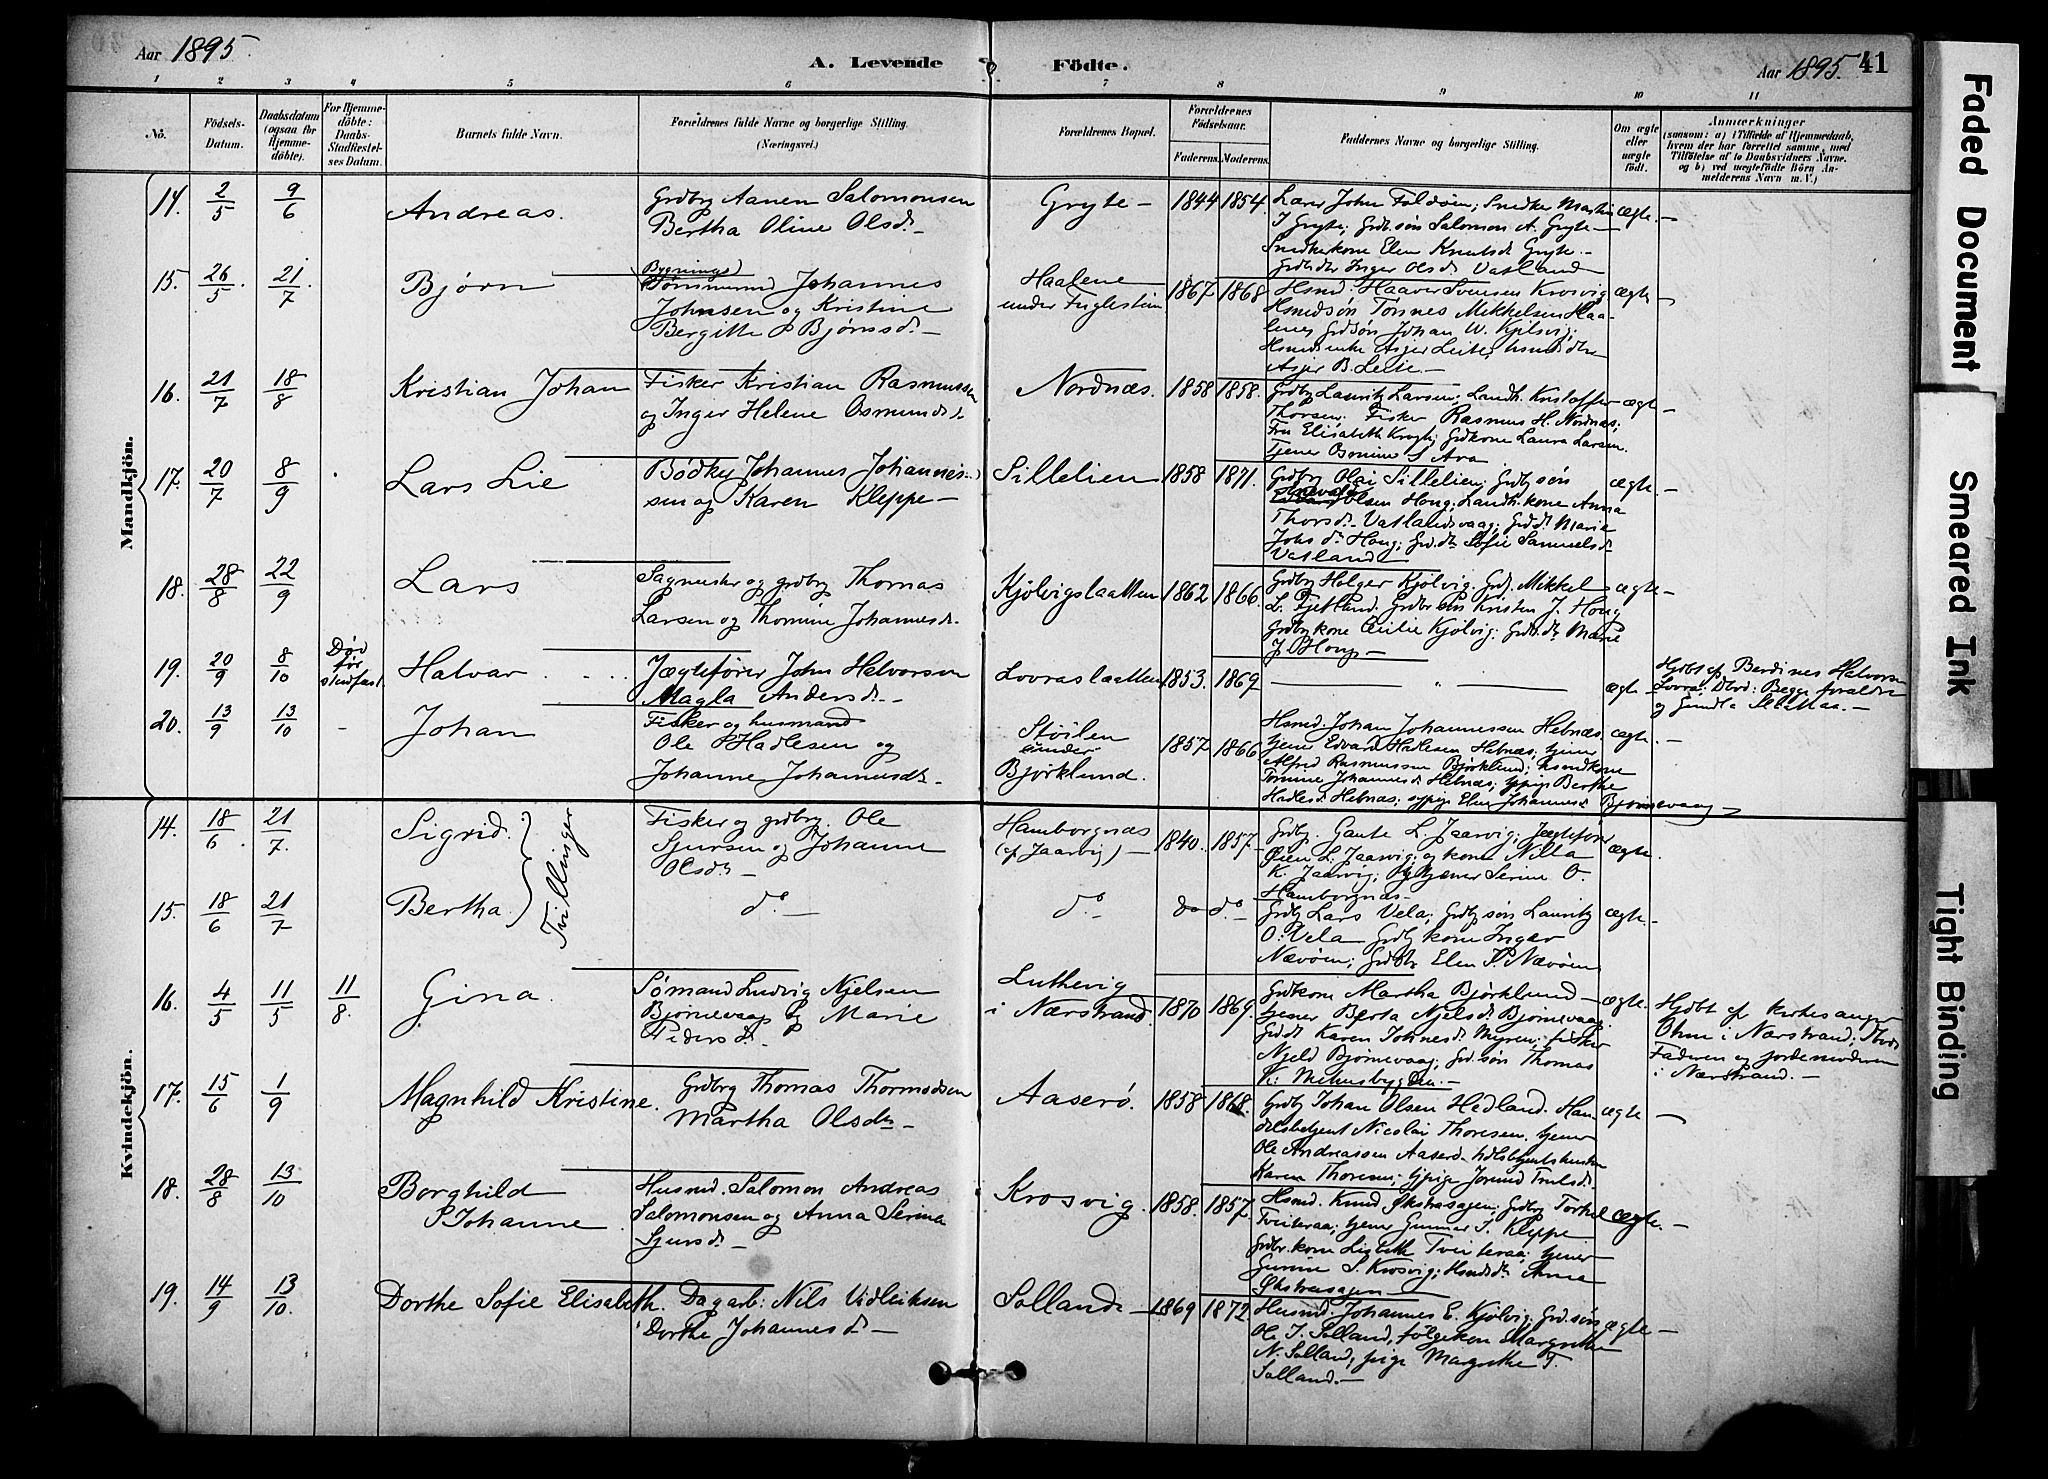 Aar 1895.
A. Levende Födte.
Aar 1895. 41
1 2 3 4 5 6 7 8 9 10 11
No.
Födsels-Datum.
Daabsdatum (ogsaa för Hjemme-döbte).
For Hjemme-döbte: Daabs-Stadfæstel-ses Datum.
Barnets fulde Navn.
Forældrenes fulde Navne og borgerlige Stilling.
(Næringsvei.)
Forældrenes Bopæl.
Forældrenes Födselsaar.
Faderens. Moderens.
Faddernes Navne og borgerlige Stilling.
Om ægte eller uægte födt.
Anmærkninger
(saasom: a) i Tilfælde af Hjemmedaab, hvem der har forrettet samme, med Tilföielse af to Daabsvidners Navne, og b) ved uægtefödte Börn An-melderens Navn m. V.)
Mandkjön.
14. 2/5 9/6 Andreas. Grdbr Aanen Salomonsen
Bertha Oline Olsd. –
Gryte – 1844 1854. Lærer John Foldöen; Snedker Martin
J Gryte; Grdb. søn Salomon A. Gryte –
Snedkerkone Elen Knutsd. Gryte. –
Inger Olsd. Vatland
ægte. –
15. 26/5. 21/7. Bjørn Bygnings)
Johannes
Johnsen og Kristine
Bergitte Bjørnsd. –
Haalene
under Fuglestein
1867 1868 Hsmd. Haaver Svensen Krosvig
Hsmdsøn Tønnes Mikkelsen Haa-
lene; Grdsøn Johan W. Kjilsvig;
Hsmdsenke Asjer Leite;
Asjer B. Leite. –
ægte –
16. 21/7 18/8 Kristian Johan Fisker Kristian Rasmussen
og Inger Helene Osmundsd. –
Nordnæs. 1858 1858. Grdbr Lauritz Larsen; Landh. Kristoffer
Thorsen. Fisker Rasmus H. Nordnæs;
Fru Elisabeth Krogh; Grdkone Laura Larsen.
Tjener Osmine S Ara
ægte –
17. 20/7 8/9 Lars Lie Bødker Johannes Johannes-
sen og Karen Kleppe –
Sillelien 1858 1871. Grdbr Olai Sillelien; Grdbsøn
Olsen Houg; Landh. kone Anna
Thorsd. Vatlandsvaag; Grdd. Marie
Johs d. Houg; Grd.dtr Sofie Samuelsd.
Vatland
ægte. –
18. 28/8 22/9 Lars Sagmester og grdbr Thomas
Larsen og Thomine Johannesd. –
Kjölvigslaatten 1862 1866. Grdbr Holger Kjölvig. Grd. Mikkel
L. Fjetland. Grdbr søn Kristen J. Houg
Grdbrkone Cecilie Kjölvig; Grdb. dt. Marie
J. Houg –
ægte –
19. 20/9 8/10 Død
før
stadfæst.
Halvar. . . . Jægtefører John Halvorsen
Magla Andersd. –
Lovraslaatten 1853. 1869 – – " – –
ægte –
Hjdbt af Berdines Halvorsen
Lovra; Dbvd: Begge forældre
og Gundla Slaattaa. –
20. 13/9 13/10 – Johan Fisker og husmand
Ole Hadlesen og
Johanne Johannesdt. –
Stöilen
under
Bjørklund.
1857 1866 Hsmd. Johan Johannessen Hebnæs,
tjener Edvard Hadlesen Hebnæs; tjener
Alfred Rasmussen Bjørklund; husmkone
Tomine Johannesd. Hebnæs; sypige Berthe
Hadlesd. Hebnæs; sypige Elen Johannesd. Bjørnevaag –
ægte. –
Kvindekjön.
14. 18/6. 21/7. Sigrid. Fisker og grdbr. Ole
Sjursen og Johanne
Olsdt. –
Tvillinger
Hamborgnæs
(af Jaarvig) –
1840. 1857 – Grdbr. Gaute L. Jaarvig; Jægtefører
Øien L. Jaarvig; og kone Nilla
K. Jaarvig; Tjener Serine O.
Hamborgnæs –
ægte.
15. 18/6 21/7 Bertha. do. – do. – do do. – Grdbr Lars Vela; Grdbrsøn Lauritz
O. Vela Grdbrkone Inger
Nævöen; Grdbdtr Elen P. Nævöen
ægte. –
16. 4/5 11/5 11/8. Gina. Sømand Ludvig Njelsen
Bjørnevaag og Marie
Pedersd. –
Luthevig
i Nærstrand.
1870 1869. Grdkone Martha Bjørklund –
tjener Berta Njelsd. Bjørnevaag;
Grd.dt Karen Johnesd. Myren; fisker
Njeld Bjørnevaag; Grd. søn Thomas
K. Mehusbygden. –
ægte.
Hjdbt af kirkesanger
Ohm i Nærstrand; Dbvd:
Faderen og jordemoderen
i Nærstrand. –
17. 15/6 1/9 Magnhild Kristine. Grdbrg Thomas Thormodsen
Martha Olsdtr –
Aaserö. 1858 1868. Grdbr Johan Olsen Hedland. Han-
delsbetjent Nicolai Thoresen, tjener
Ole Andreassen Aaserö.
Karen Thoresen; sypige Jorund Truelsd.
ægte –
18. 28/8 13/10 Borghild
Johanne
Husmd. Salomon Andreas
Salomonsen og Anna Serina
Sjursd. –
Krosvig. 1858. 1857. Hsmd. Knud Økstrasagen; Grdbr Torkel
Tveiteraa; tjener Gunnar T. Kleppe
Grdbr. kone Lisbeth Tveiteraa; tjener
Gurine S. Krosvig; Hsmdsdt. Anna
Økstrasagen –
ægte. –
19. 14/9 13/10. Dorthe Sofie Elisabeth. Dagarb: Nils Vidleiksen
Dorthe Johannesd. –
Solland – 1869 1872. Husmd. Johannes E. Kjölvig; Grd. søn
Ole I. Solland, følgekone Margrethe
N. Solland, pige Margrethe T.
Solland. –
ægte –
Faded Document
Smeared Ink
Tight Binding